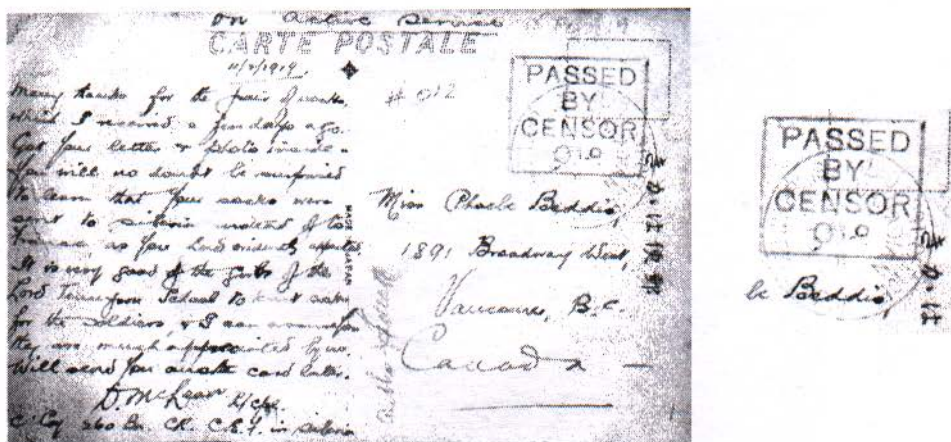 on active service
CARTE POSTALE
11/2/1919.
Many thanks for the pair of socks,
which I received a few days ago.
Got your letter & photo inside.
You will no doubt be surprised
to learn that your socks were
sent to Siberia instead of to
France as you had evidently expected
It is very good of the girls of the
Lord Tennyson School to knit socks
for the soldiers, & I can assure you
they are much appreciated by us.
Will send you another card later.
D. McLean L/Cpl.
C. Coy 260 Bn. CR. C.E.F. in Siberia
MADE JAPAN
PASSED
BY
CENSOR
Miss Phoebe Beddis,
1891 Broadway West,
Vancouver, B.C.
Canada
PASSED
BY
CENSOR
be Beddis,